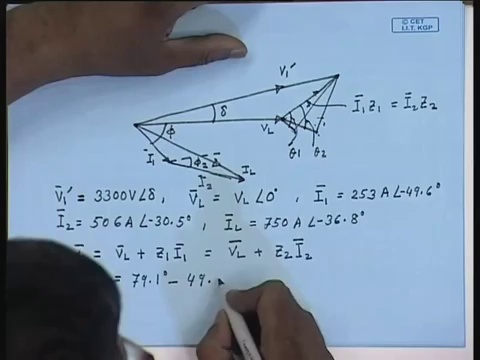 © CET
I.I.T. KGP
V̄₁′
δ
V_L
Ī₁Z₁ = Ī₂Z₂
φ
Ī₁
φ₂
I_L
Ī₂
θ₁ θ₂
V̄₁′ = 3300V∠δ, V̄_L = V_L∠0°, Ī₁ = 253 A∠-49.6°
Ī₂ = 506 A∠-30.5°, Ī_L = 750 A∠-36.8°
= V̄_L + Z₁Ī₁ = V̄_L + Z₂Ī₂
= 79.1° - 49.